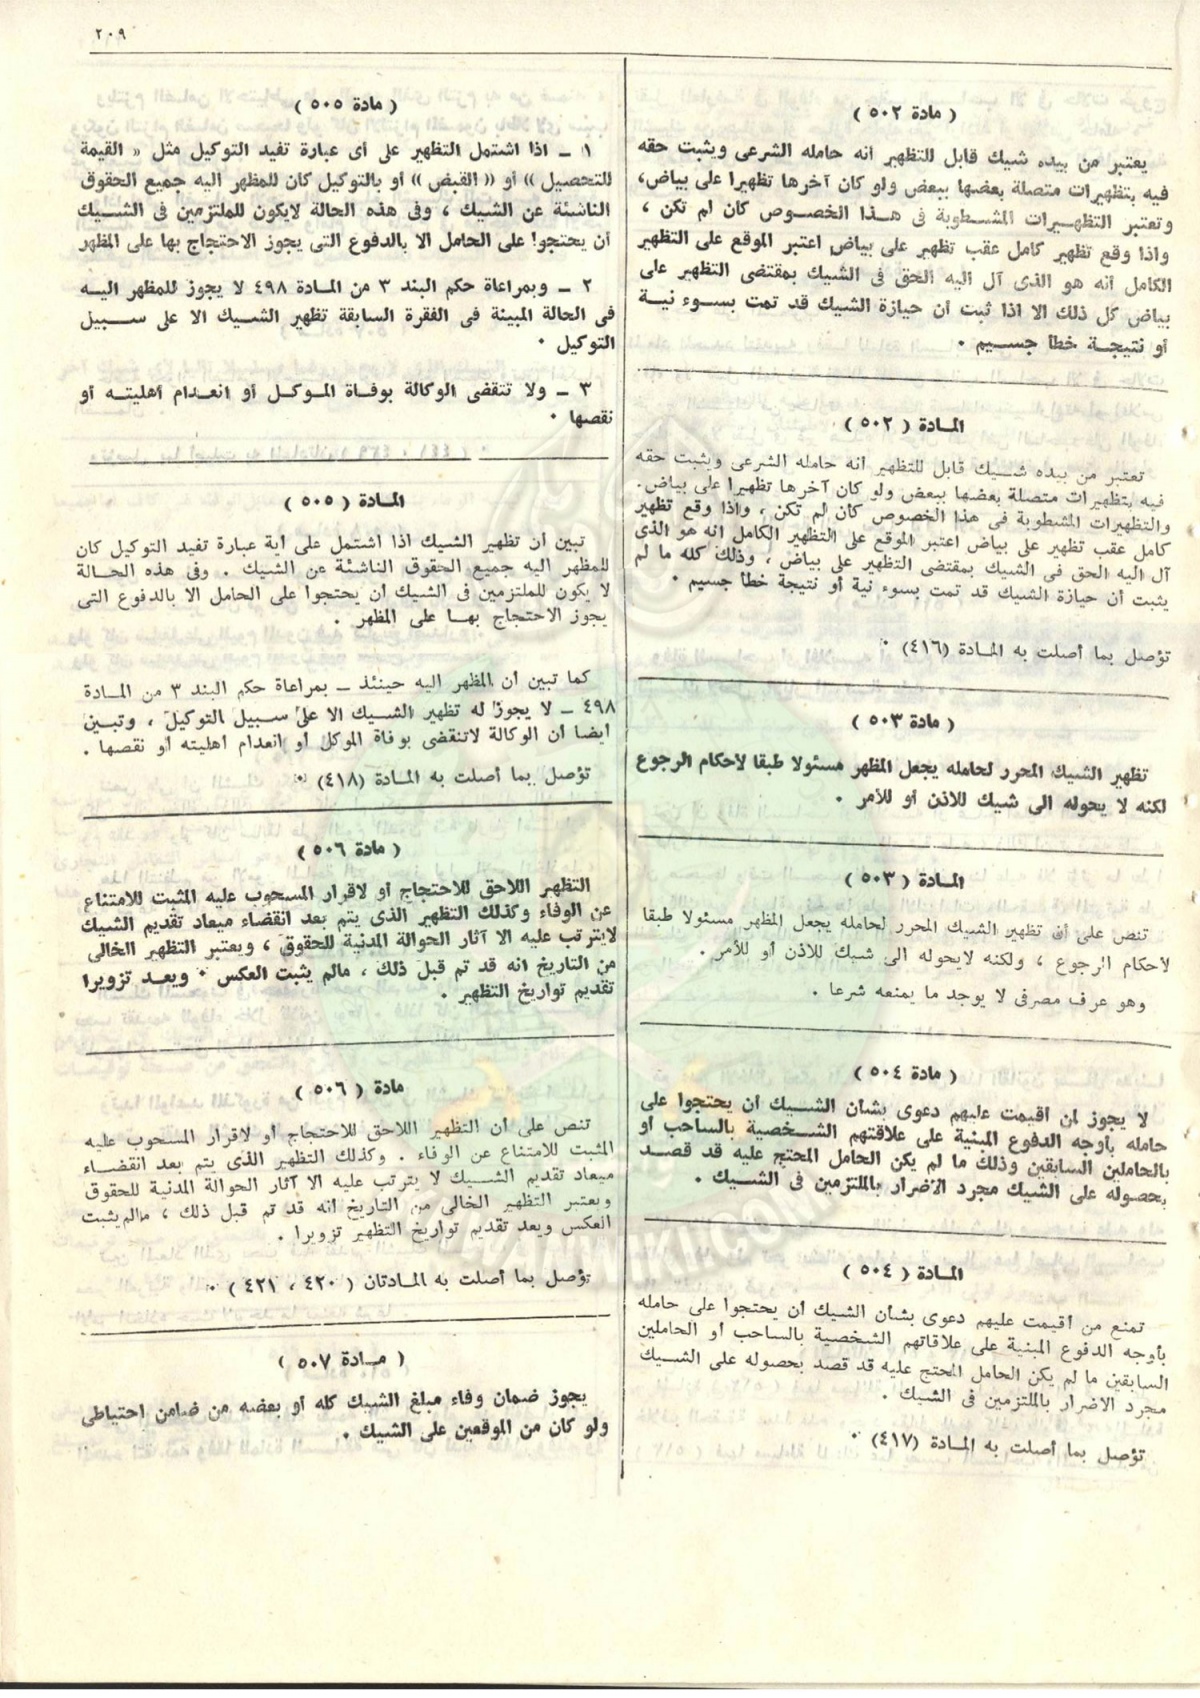 ٢٠٩
( مادة ٥٠٢ )
يعتبر من بيده شيك قابل للتظهير انه حامله الشرعى ويثبت حقه
فيه بتظهيرات متصلة بعضها ببعض ولو كان آخرها تظهيرا على بياض،
وتعتبر التظهيرات المشطوبة فى هذا الخصوص كان لم تكن ،
واذا وقع تظهير كامل عقب تظهير على بياض اعتبر الموقع على التظهير
الكامل انه هو الذى آل اليه الحق فى الشيك بمقتضى التظهير على
بياض كل ذلك الا اذا ثبت أن حيازة الشيك قد تمت بسوء نية
أو نتيجة خطا جسيم .
المادة ( ٥٠٢ )
تعتبر من بيده شيك قابل للتظهير انه حامله الشرعى ويثبت حقه
فيه بتظهيرات متصلة بعضها ببعض ولو كان آخرها تظهيرا على بياض.
والتظهيرات المشطوبة فى هذا الخصوص كان لم تكن ، واذا وقع تظهير
كامل عقب تظهير على بياض اعتبر الموقع على التظهير الكامل انه هو الذى
آل اليه الحق فى الشيك بمقتضى التظهير على بياض ، وذلك كله ما لم
يثبت أن حيازة الشيك قد تمت بسوء نية أو نتيجة خطا جسيم .
تؤصل بما أصلت به المادة (٤١٦) .
( مادة ٥٠٣ )
تظهير الشيك المحرر لحامله يجعل المظهر مسئولا طبقا لاحكام الرجوع
لكنه لا يحوله الى شيك للاذن أو للأمر .
المادة ( ٥٠٣ )
تنص على أن تظهير الشيك المحرر لحامله يجعل المظهر مسئولا طبقا
لاحكام الرجوع ، ولكنه لايحوله الى شيك للاذن أو للأمر .
وهو عرف مصرفى لا يوجد ما يمنعه شرعا .
( مادة ٥٠٤ )
لا يجوز لمن اقيمت عليهم دعوى بشأن الشيك ان يحتجوا على
حامله بأوجه الدفوع المبنية على علاقتهم الشخصية بالساحب أو
بالحاملين السابقين وذلك ما لم يكن الحامل المحتج عليه قد قصد
بحصوله على الشيك مجرد الاضرار بالملتزمين فى الشيك .
المادة ( ٥٠٤ )
تمنع من اقيمت عليهم دعوى بشأن الشيك ان يحتجوا على حامله
بأوجه الدفوع المبنية على علاقاتهم الشخصية بالساحب أو الحاملين
السابقين ما لم يكن الحامل المحتج عليه قد قصد بحصوله على الشيك
مجرد الاضرار بالملتزمين فى الشيك .
تؤصل بما أصلت به المادة (٤١٧) .
( مادة ٥٠٥ )
١ ــ اذا اشتمل التظهير على أى عبارة تفيد التوكيل مثل « القيمة
للتحصيل )) أو (( القبض )) أو بالتوكيل كان للمظهر اليه جميع الحقوق
الناشئة عن الشيك ، وفى هذه الحالة لايكون للملتزمين فى الشيك
أن يحتجوا على الحامل الا بالدفوع التى يجوز الاحتجاج بها على المظهر
٢ ــ وبمراعاة حكم البند ٣ من المادة ٤٩٨ لا يجوز للمظهر اليه
فى الحالة المبينة فى الفقرة السابقة تظهير الشيك الا على سبيل
التوكيل .
٣ ــ ولا تنقضى الوكالة بوفاة الموكل أو انعدام أهليته أو
نقصها .
المادة ( ٥٠٥ )
تبين أن تظهير الشيك اذا اشتمل على اية عبارة تفيد التوكيل كان
للمظهر اليه جميع الحقوق الناشئة عن الشيك . وفى هذه الحالة
لا يكون للملتزمين فى الشيك أن يحتجوا على الحامل الا بالدفوع التى
يجوز الاحتجاج بها على المظهر .
كما تبين أن المظهر اليه حينئذ ــ بمراعاة حكم البند ٣ من المادة
٤٩٨ ــ لا يجوز له تظهير الشيك الا على سبيل التوكيل ، وتبين
ايضا ان الوكالة لاتنقضى بوفاة الموكل أو انعدام اهليته أو نقصها .
تؤصل بما أصلت به المادة (٤١٨) .
( مادة ٥٠٦ )
التظهير اللاحق للاحتجاج أو لاقرار المسحوب عليه المثبت للامتناع
عن الوفاء وكذلك التظهير الذى يتم بعد انقضاء ميعاد تقديم الشيك
لايترتب عليه الا آثار الحوالة المدنية للحقوق ، ويعتبر التظهير الخالى
من التاريخ انه قد تم قبل ذلك ، مالم يثبت العكس . ويعد تزويرا
تقديم تواريخ التظهير .
مادة ( ٥٠٦ )
تنص على أن التظهير اللاحق للاحتجاج أو لاقرار المسحوب عليه
المثبت للامتناع عن الوفاء . وكذلك التظهير الذى يتم بعد انقضاء
ميعاد تقديم الشيك لا يترتب عليه الا آثار الحوالة المدنية للحقوق
ويعتبر التظهير الخالى من التاريخ انه قد تم قبل ذلك ، مالم يثبت
العكس ويعد تقديم تواريخ التظهير تزويرا .
تؤصل بما أصلت به المادتان ( ٤٢٠ ، ٤٢١ ) .
( مادة ٥٠٧ )
يجوز ضمان وفاء مبلغ الشيك كله أو بعضه من ضامن احتياطى
ولو كان من الموقعين على الشيك .